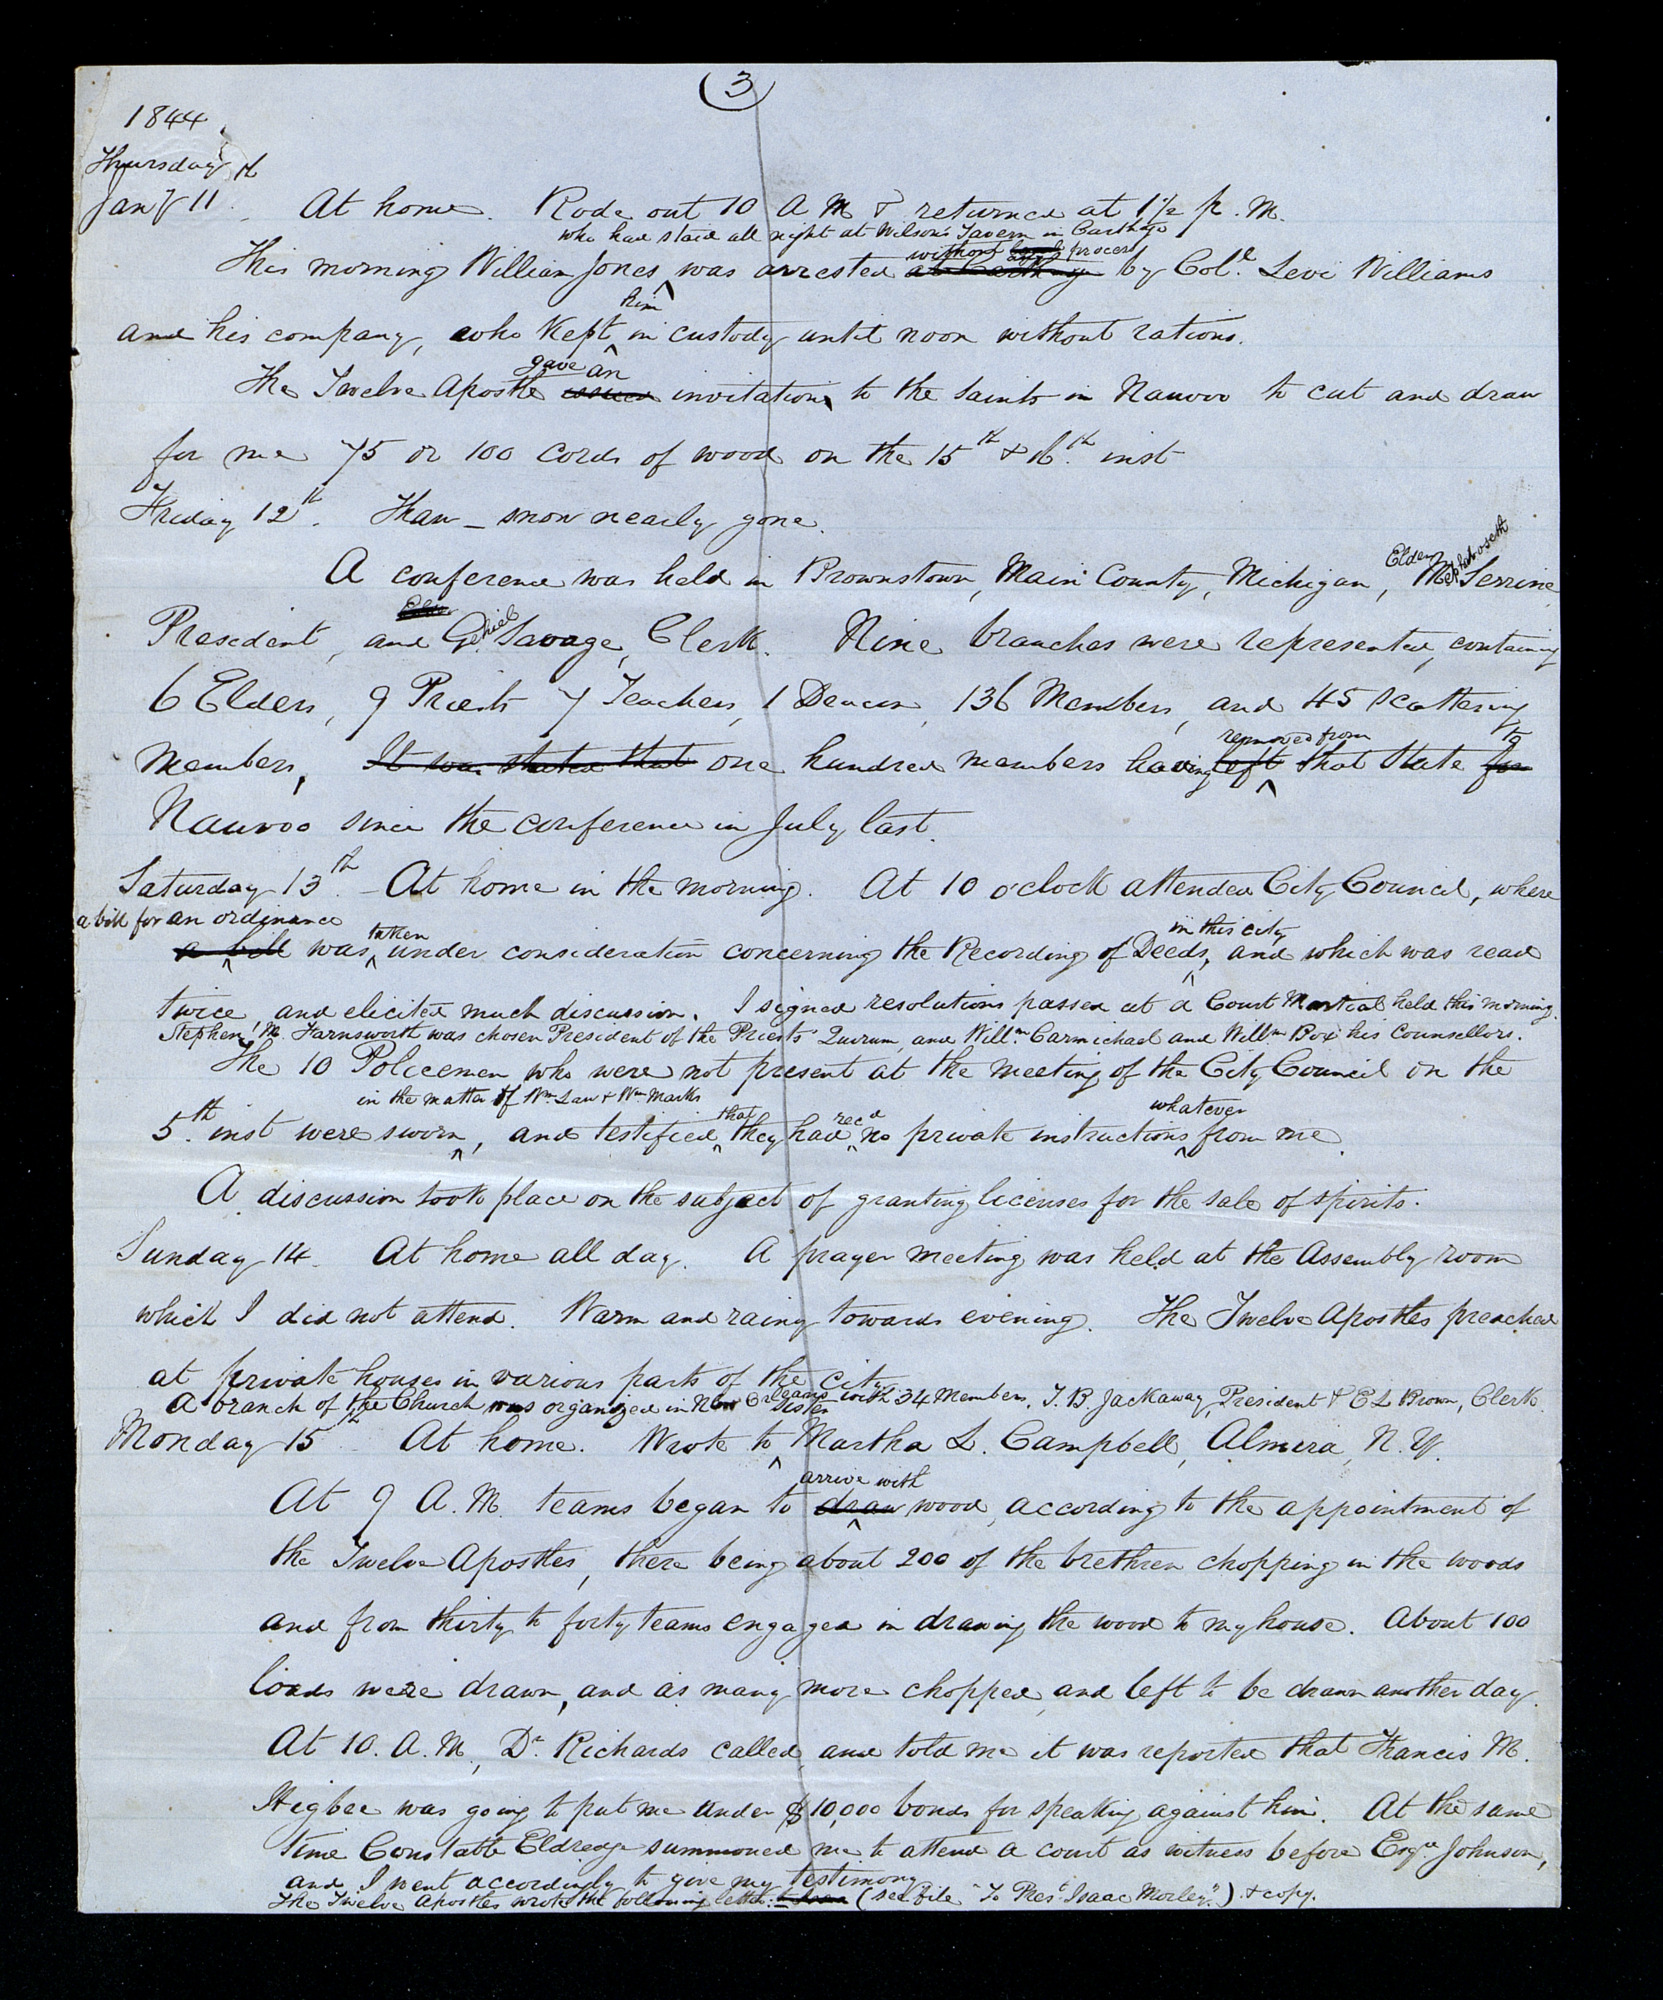 (3)
1844
Thursday th
Jany 11. At home. Rode out 10 A M & returned at 1½ p. M.
who had staid all night at Wilson's Tavern in Carthage
without legal process
This morning William Jones was arrested at Carthage by Col. Levi Williams
him
and his company, who kept in custody until noon without rations.
gave an
The Twelve Apostle issued invitation to the Saints in Nauvoo to cut and draw
for me 75 or 100 cords of wood on the 15th & 16th inst
Friday 12th. Thaw – snow nearly gone.
Elder Mephiboseth
A conference was held in Brownstown, Main County, Michigan, M. Serrine
Elder
President, and Gehiel Savage, Clerk. Nine branches were represented, containing
6 Elders, 9 Priests 7 Teachers, 1 Deacon, 136 Members, and 45 scattering
removed from to
members, It was stated that one hundred members having left that State for
Nauvoo since the conference in July last.
Saturday 13th. – At home in the morning. At 10 o'clock attended City Council, where
a bill for an ordinance taken in this city
a bill was under consideration concerning the Recording of Deeds, and which was read
twice, and elicited much discussion. I signed resolutions passed at a Court Martial held this morning.
Stephen M. Farnsworth was chosen President of the Priests Quorum, and Willm. Carmichael and Willm Box his Counsellors.
The 10 Policemen who were not present at the meeting of the City Council on the
in the matter of Wm Law & Wm Marks that recd whatever
5th. inst were sworn, and testified they had no private instructions from me.
A discussion took place on the subject of granting licenses for the sale of spirits.
Sunday 14. At home all day. A prayer meeting was held at the Assembly room
which I did not attend. Warm and rainy towards evening. The Twelve Apostles preached
at private houses in various parts of the city.
A branch of the Church was organized in New Orleans with 34 Members, T. B. Jackaway, President & E L Brown, Clerk.
sister
Monday 15th At home. Wrote to Martha L. Campbell, Almira, N. Y.
arrive with
At 9 A.M. teams began to draw wood, according to the appointment of
the Twelve Apostles, there being about 200 of the brethren chopping in the woods
and from thirty to forty teams engaged in drawing the wood to my house. About 100
loads were drawn, and as many more chopped, and left to be drawn another day.
At 10. A. M, Dr. Richards called, and told me it was reported that Francis M.
Higbee was going to put me under $10,000 bonds for speaking against him. At the same
time Constable Eldredge summoned me to attend a court as witness before Esqr. Johnson,
and I went accordingly to give my testimony.
The Twelve Apostles wrote the following letter. (see file "To Pres.t Isaac Morley") & copy.